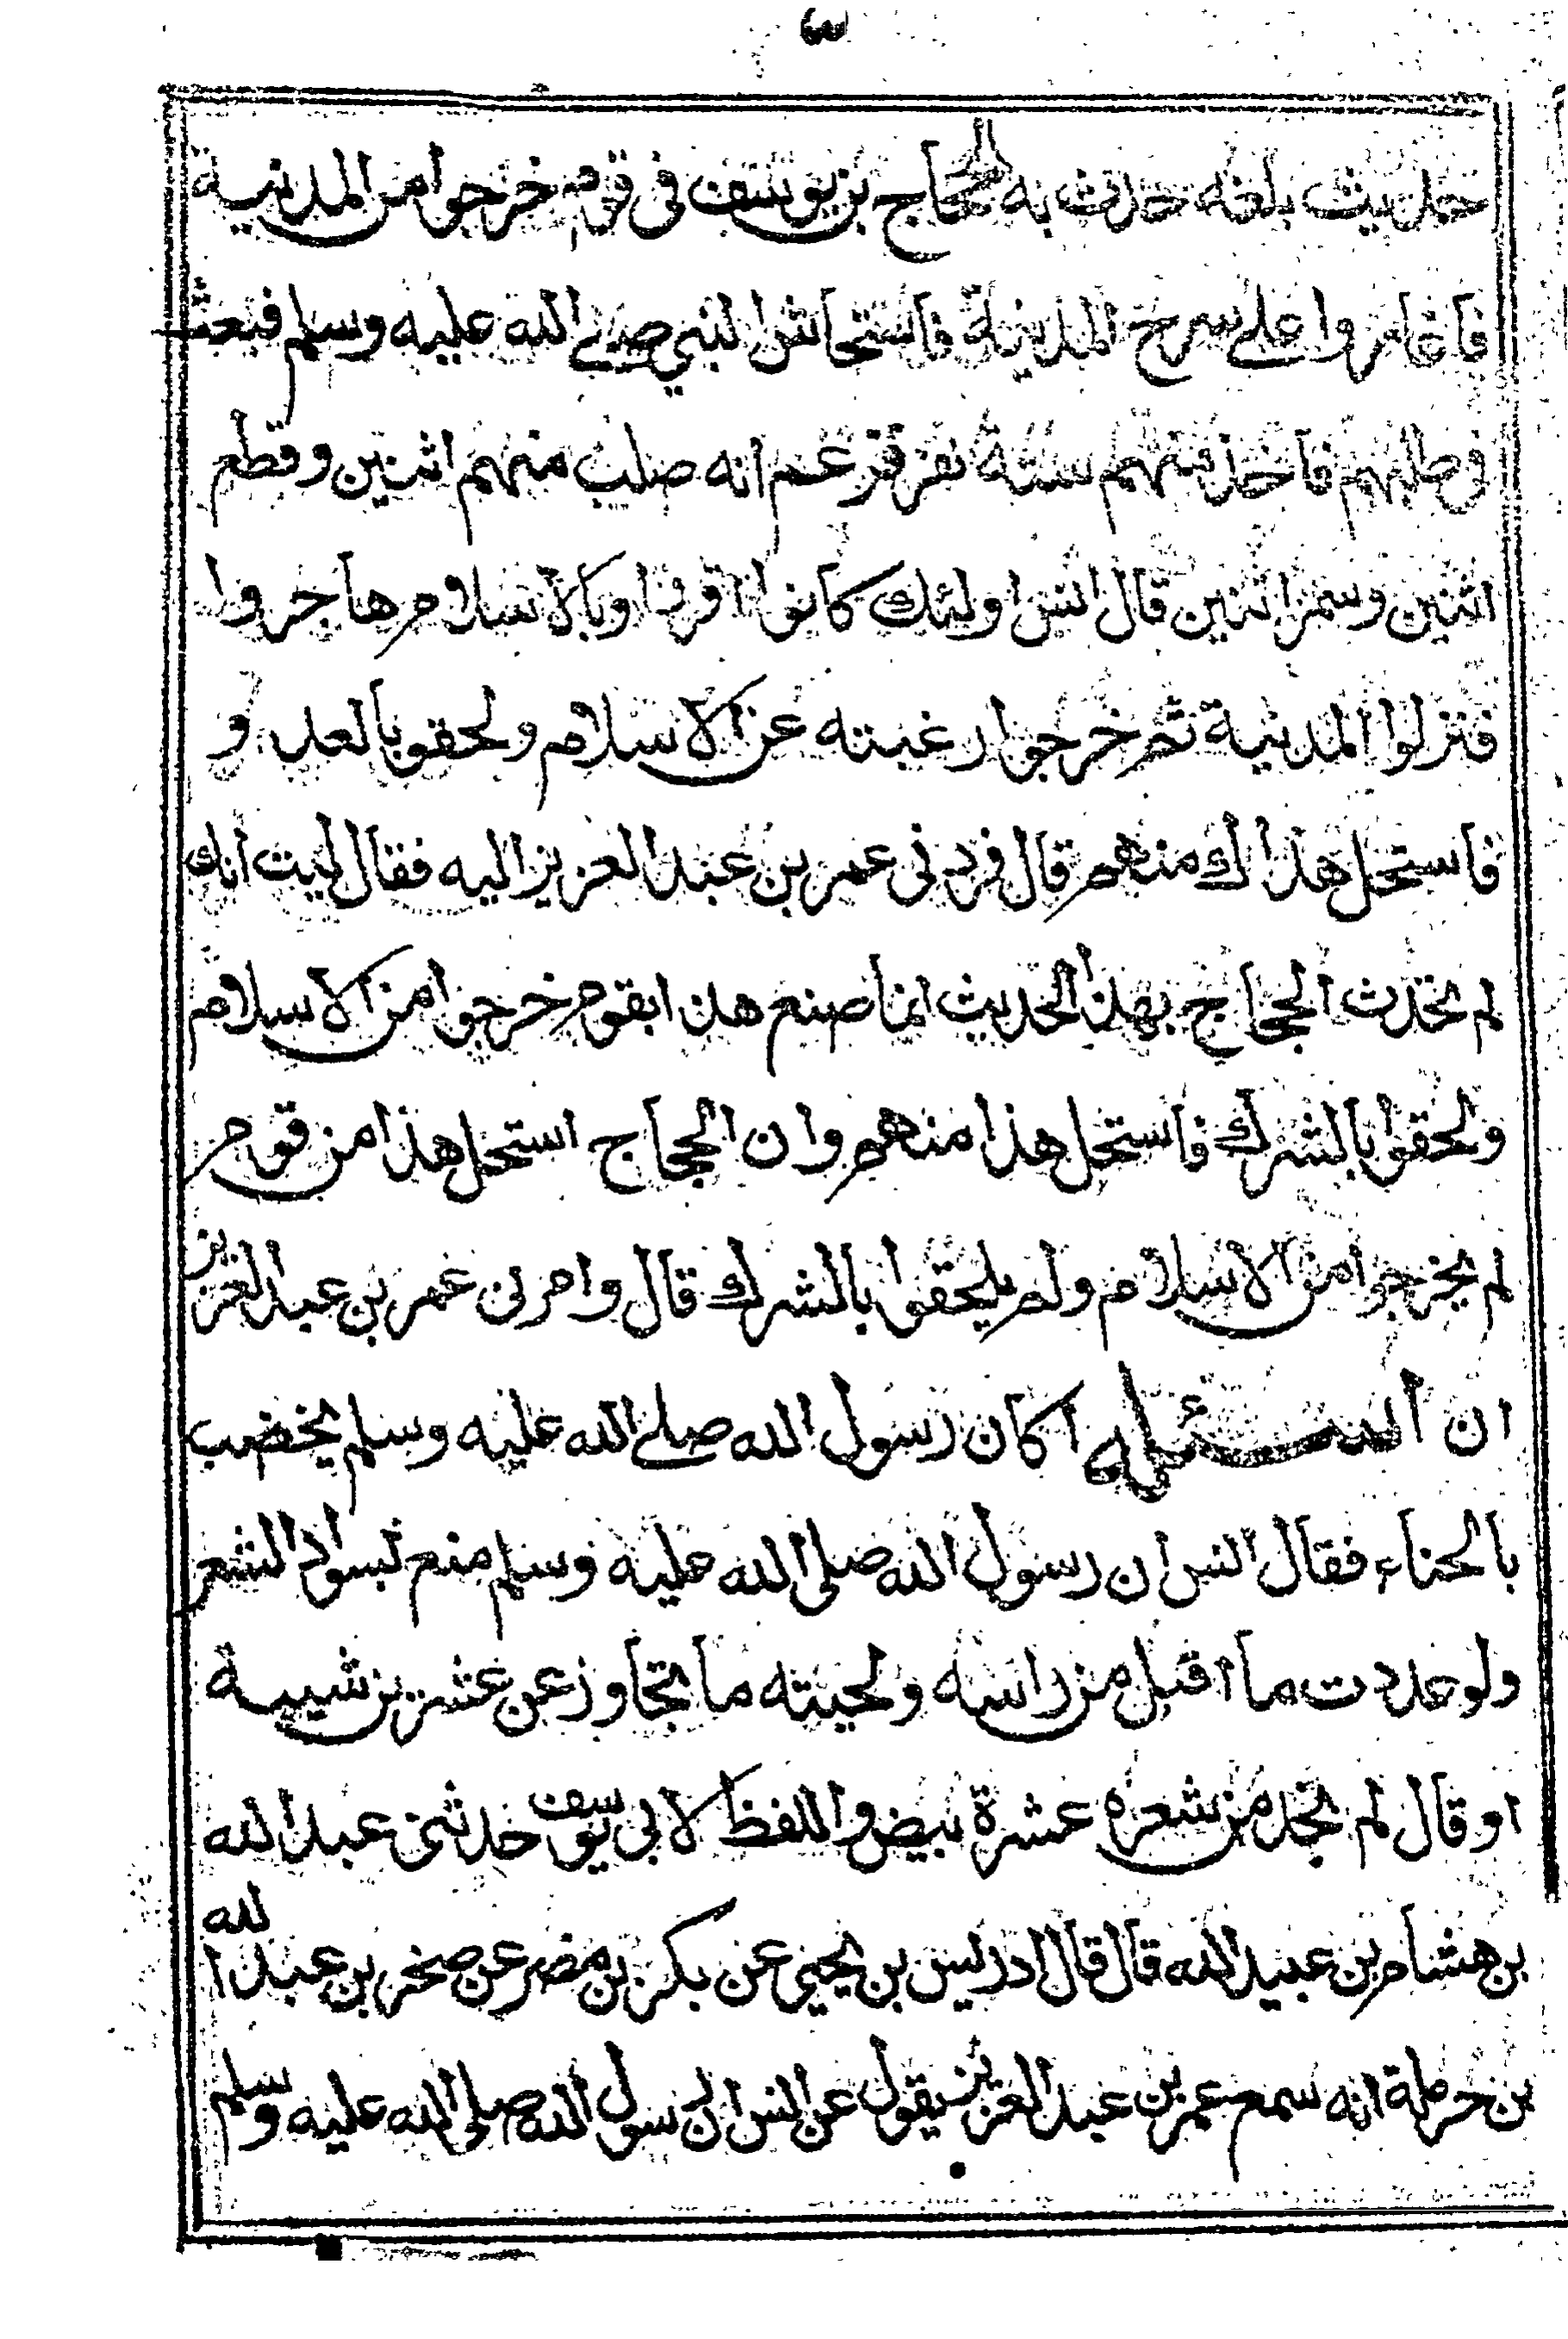 حديث بلغه حدث به الحجاج بن يوسف فى قوم خرجوا من المدينة
فاغاروا على سرح المدينة فاستحاش النبي صلى الله عليه وسلم فبعث
فى طلبهم فاخذ منهم ستة نفر فزعم انه صلب منهم اثنين وقطع
اثنين وسمر اثنين قال انس اولئك كانوا اقروا بالاسلام هاجروا
فنزلوا المدينة ثم خرجوا رغبته عن الاسلام ولحقو بالعدو
فاستحل هذاك منهم قال فردنى عمر بن عبد العزيز اليه فقال ليت انك
لم تحدث الحجاج بهذا الحديث انما صنع هذا بقوم خرجوا من الاسلام
ولحقوا بالشرك فاستحل هذا منهم وان الحجاج استحل هذا من قوم
لم يخرجوا من الاسلام ولم يلحقوا بالشرك قال وامرنى عمر بن عبد العزيز
ان اسئله اكان رسول الله صلى الله عليه وسلم يخضب
بالحناء فقال انس ان رسول الله صلى الله عليه وسلم منع بسواد الشعر
ولو عددت ما اقبل من راسه ولحيته ما تجاوز عن عشرين شيبة
او قال لم تجد من شعره عشرة بيض واللفظ لابى يوسف حدثنى عبد الله
بن هشام بن عبيد الله قال قال ادريس بن يحيى عن بكر بن مضر عن صخر بن عبد الله
بن حرملة انه سمع عمر بن عبد العزيز يقول عن انس ان رسول الله صلى الله عليه وسلم